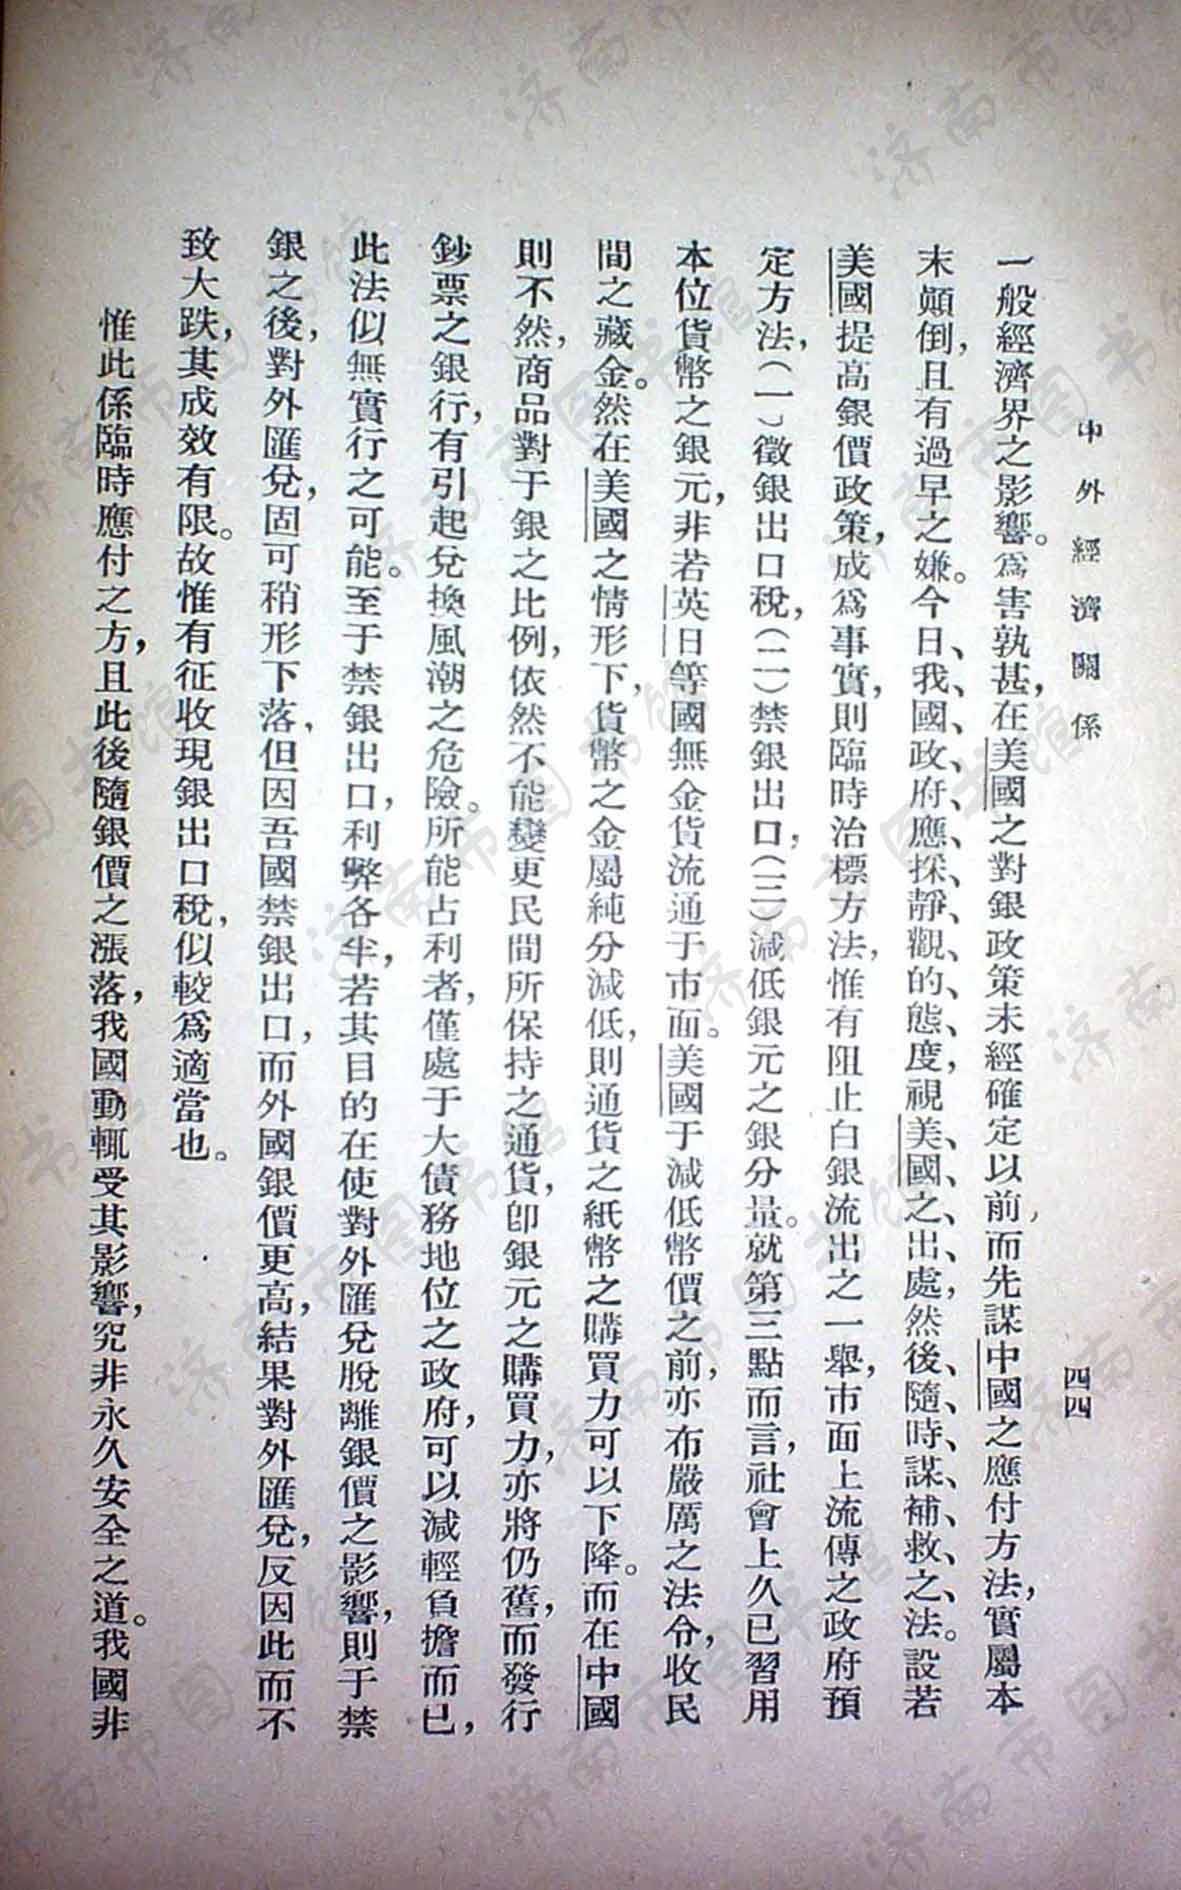 中外經濟關係
四四
一般經濟界之影響。爲害孰甚，在美國之對銀政策未經確定以前，而先謀中國之應付方法，實屬本
末顚倒，且有過早之嫌。今日、我、國、政、府、應、採、靜、觀、的、態、度，視、美、國、之、出、處，然、後、隨、時、謀、補、救、之、法。設若
美國提高銀價政策，成爲事實，則臨時治標方法，惟有阻止白銀流出之一舉，市面上流傳之政府預
定方法，（一）徵銀出口稅，（二）禁銀出口，（三）減低銀元之銀分量。就第三點而言，社會上久已習用
本位貨幣之銀元，非若英日等國無金貨流通于市面。美國于減低幣價之前，亦布嚴厲之法令，收民
間之藏金。然在美國之情形下，貨幣之金屬純分減低，則通貨之紙幣之購買力可以下降。而在中國
則不然，商品對于銀之比例，依然不能變更民間所保持之通貨，卽銀元之購買力，亦將仍舊，而發行
鈔票之銀行，有引起兌換風潮之危險。所能占利者，僅處于大債務地位之政府，可以減輕負擔而已，
此法似無實行之可能。至于禁銀出口，利弊各半，若其目的在使對外匯兌脫離銀價之影響，則于禁
銀之後，對外匯兌，固可稍形下落，但因吾國禁銀出口，而外國銀價更高，結果對外匯兌，反因此而不
致大跌，其成效有限。故惟有征收現銀出口稅，似較爲適當也。
惟此係臨時應付之方，且此後隨銀價之漲落，我國動輒受其影響，究非永久安全之道。我國非
济南市图书馆